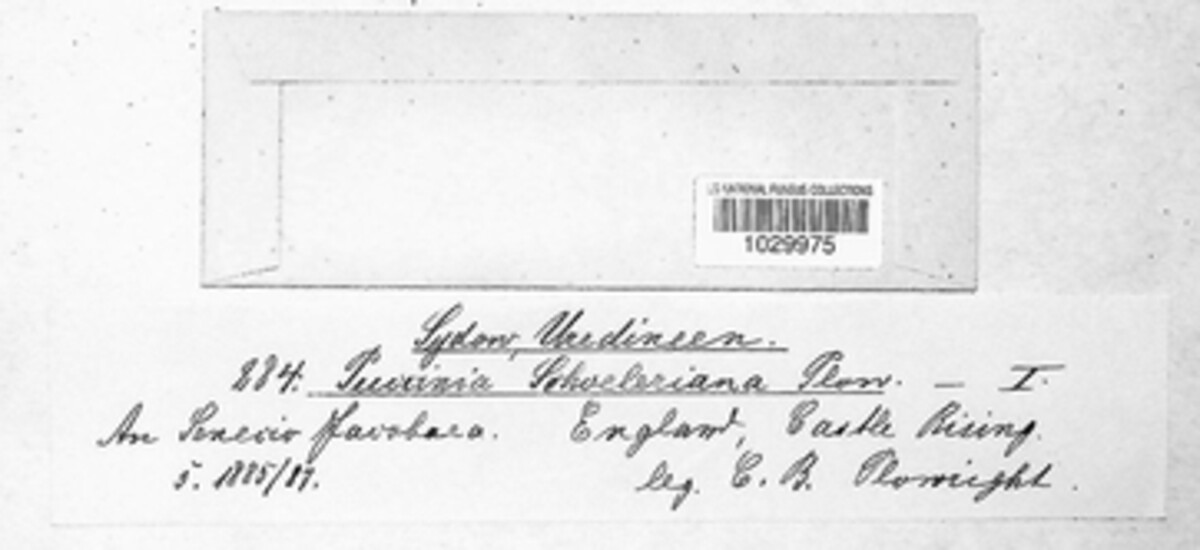 US NATIONAL FUNGUS COLLECTIONS
1029975
Sydow, Uredineen.
284. Puccinia Schoeleriana Plow. — I.
An Senecio Jacobaea. England, Castle Rising.
5. 1885/87. leg. C. B. Plowright.